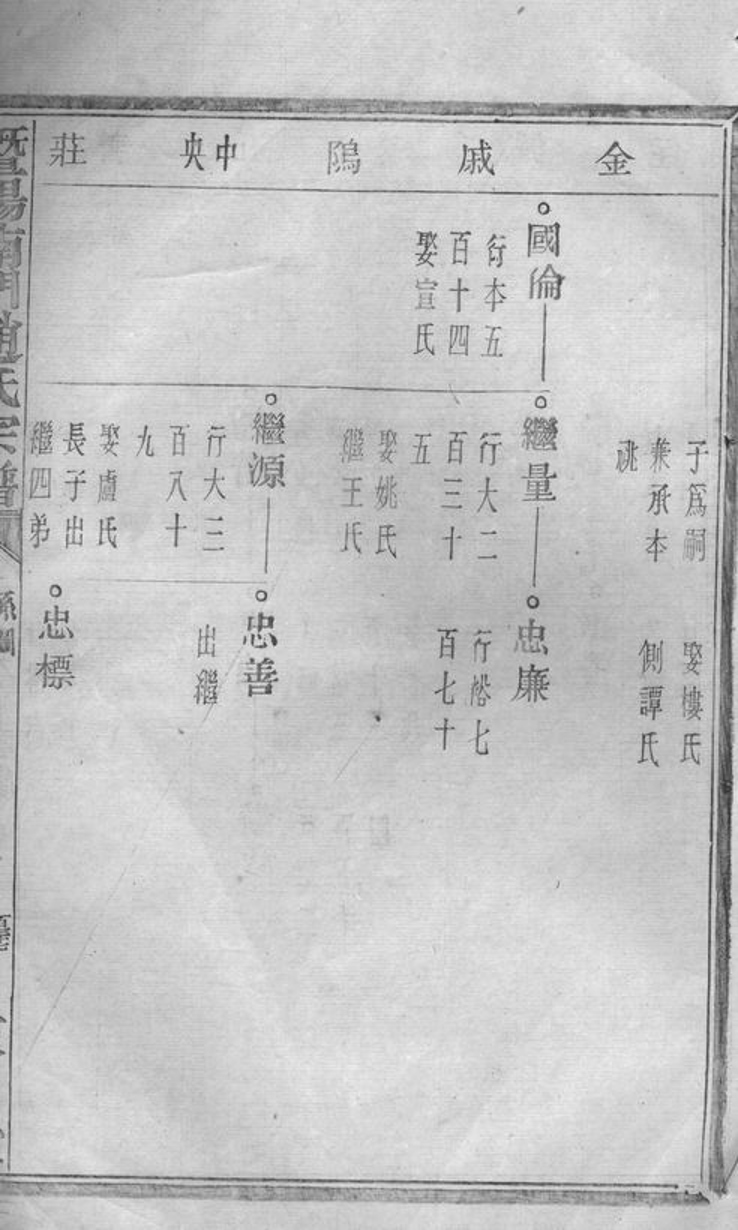 金戚隖中央莊
子爲嗣
兼承本
祧
娶樓氏
側譚氏
國倫
行本五
百十四
娶宣氏
繼量
行大二
百三十
五
娶姚氏
繼王氏
忠廉
行裕七
百七十
繼源
行大三
百八十
九
娶盧氏
長子出
繼四弟
忠善
出繼
忠標
暨陽南門趙氏宗譜